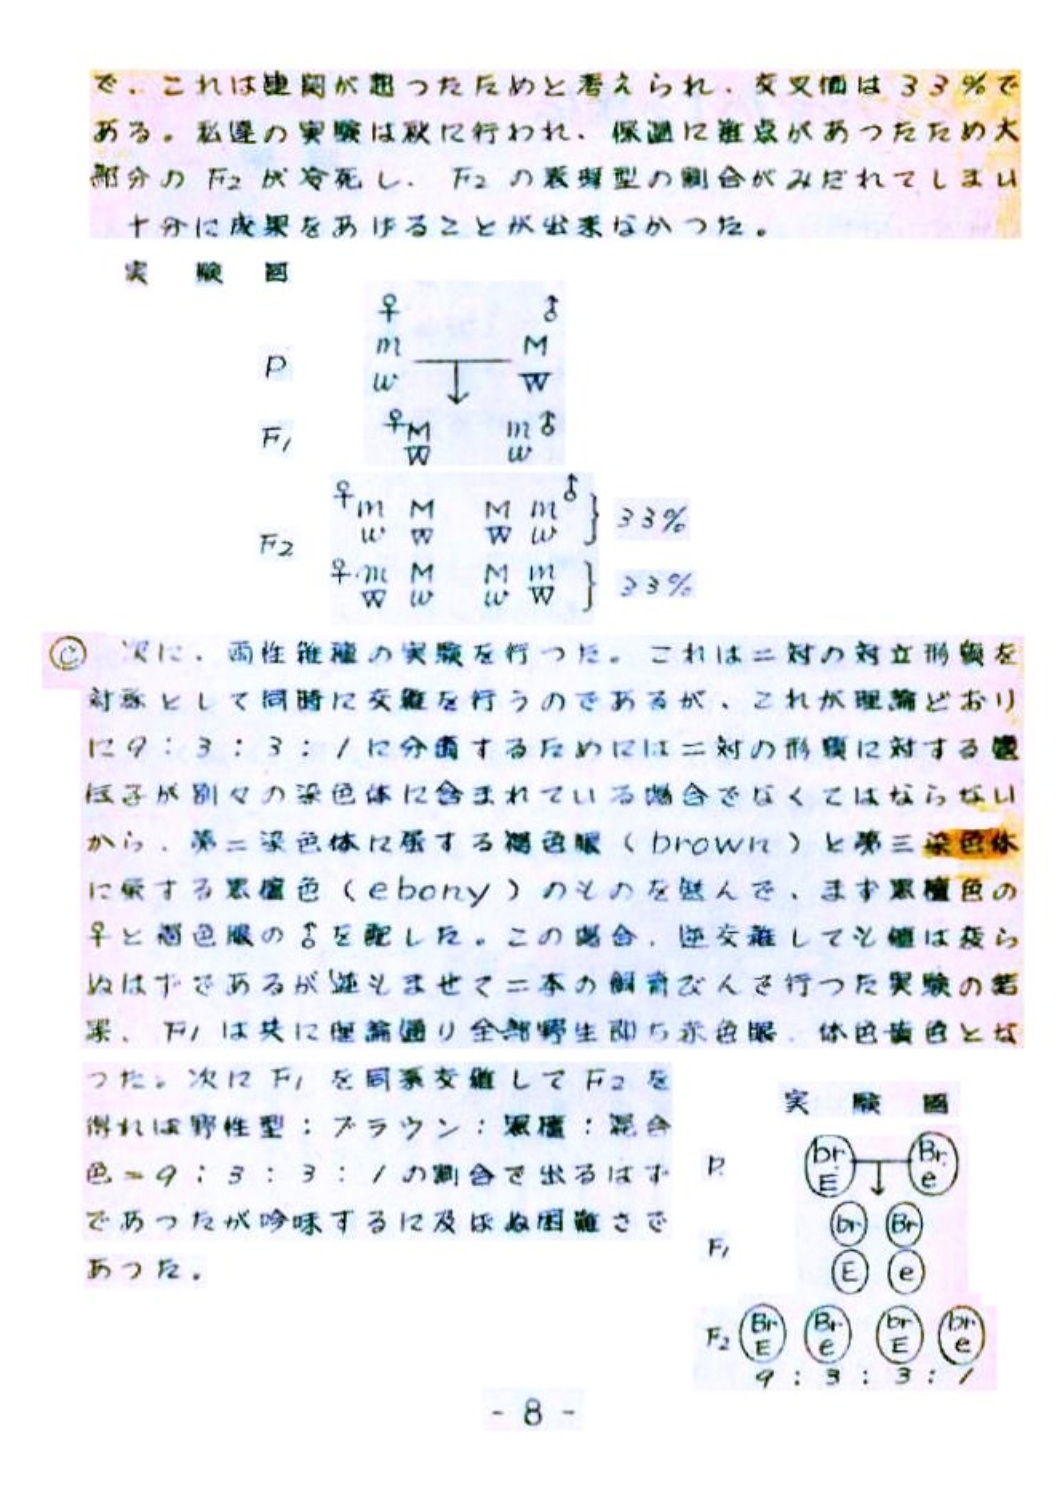 で、これは連関が起つたためと考えられ、交叉価は33%で
ある。私達の実験は秋に行われ、保温に難点があつたため大
部分のF2が冷死し、F2の表現型の割合がみだれてしまい
十分に成果をあげることが出来なかつた。
実 験 図
♀ ♂
P m M
w W
F1 ♀M m♂
W w
♀m M M m♂ 33%
F2 w W W w
♀m M M m 33%
W w w W
Ⓒ 次に、両性雑種の実験を行つた。これは二対の対立形質を
対象として同時に交雑を行うのであるが、これが理論どおり
に9:3:3:1に分離するためには二対の形質に対する遺
伝子が別々の染色体に含まれている場合でなくてはならない
から、第二染色体に属する褐色眼(brown)と第三染色体
に属する黒檀色(ebony)のものを選んで、まず黒檀色の
♀と褐色眼の♂を配した。この場合、逆交雑しても値は変ら
ぬはずであるが逆もませて二本の飼育びんで行つた実験の結
果、F1は共に理論通り全部野生即ち赤色眼、体色黄色とな
つた。次にF1を同系交雑してF2を
得れば野性型:ブラウン:黒檀:混合
色=9:3:3:1の割合で出るはず
であつたが吟味するに及ばぬ困難さで
あつた。
実 験 図
P. br E Br e
F1 br Br
E e
F2 Br E Br e br E br e
9:3:3:1
- 8 -